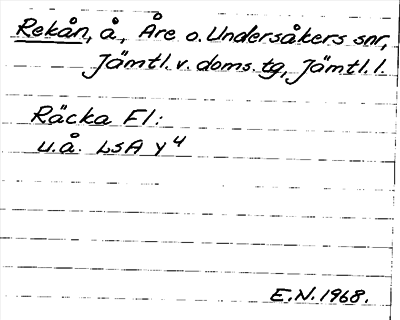 Rekån, å, Åre o. Undersåkers snr,
Jämtl. v. doms. tg, Jämtl. l.
Räcka Fl:
u.å. LsA y 4
E.N. 1968.